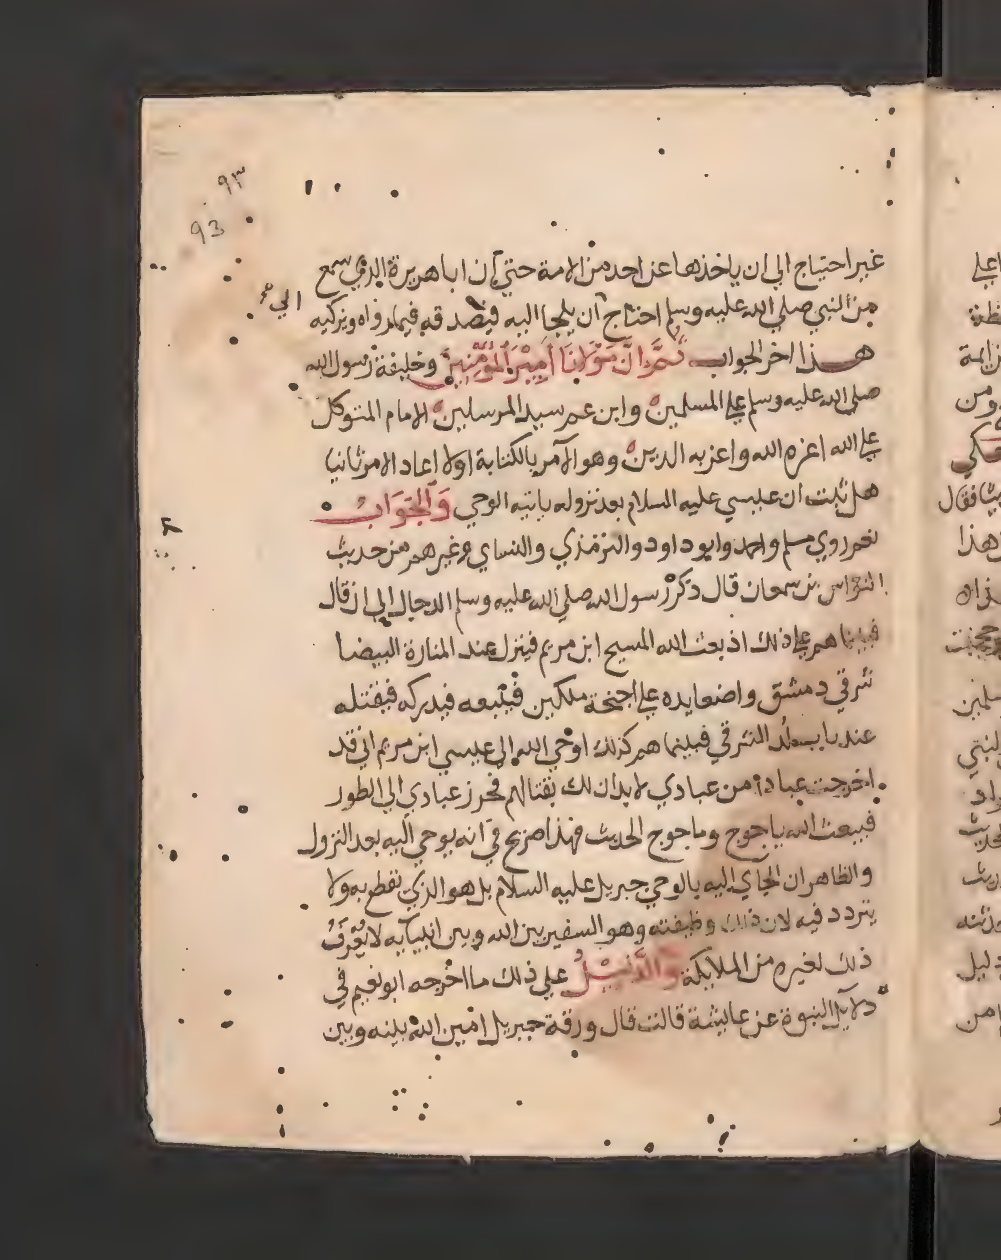 ٩٣
93
غير احتياج الى ان ياخذها عن احد من الامة حتي إن ابا هريرة الذي سمع
من النبي صلي الله عليه وسلم احتاج أن يلجا اليه فيصدقه فيما رواه ويزكيه
هذا اخر الجواب ثُمَّ اِنَّ مَوْلَانَا أَمِيْرَ اَلْمُؤْمِنِيْنَ وخليفة رسول الله
صلى الله عليه وسلم علي المسلمين وابن عم سيد المرسلين الامام المتوكل
علي الله اعزه الله واعز به الدين وهو الآمر بالكتابة اولا اعاد الامر ثانيا
هل ثبت ان عيسي عليه السلام بعد نزوله ياتيه الوحي وَالْجَوَابُ
نعم روي مسلم واحمد وابو داود والترمذي والنساي وغيرهم من حديث
النواس بن سمعان قال ذكر رسول الله صلي الله عليه وسلم الدجال الى ان قال
فبينا هم علي ذلك اذ بعث الله المسيح ابن مريم فينزل عند المنارة البيضا
شرقي دمشق واضعا يده علي اجنحة ملكين فيتبعه فيدركه فيقتله
عند باب لد الشرقي فبينما هم كذلك اوحي الله الى عيسي ابن مريم اني قد
اخرجت عبادا من عبادي لا يدان لك بقتالهم فحرز عبادي الي الطور
فيبعث الله ياجوج وماجوج الحديث فهذا صريح في انه يوحي اليه بعد النزول
والظاهر ان الجاي اليه بالوحي جبريل عليه السلام بل هو الذي نقطع به ولا
يتردد فيه لان ذلك وظيفته وهو السفير بين الله وبين انبيايه لا يُعْرَفُ
ذلك لغيره من الملايكة وَالدَّلِيْلُ علي ذلك ما اخرجه ابو نعيم في
دلايل النبوة عن عايشة قالت قال ورقة جبريل امين الله بينه وبين